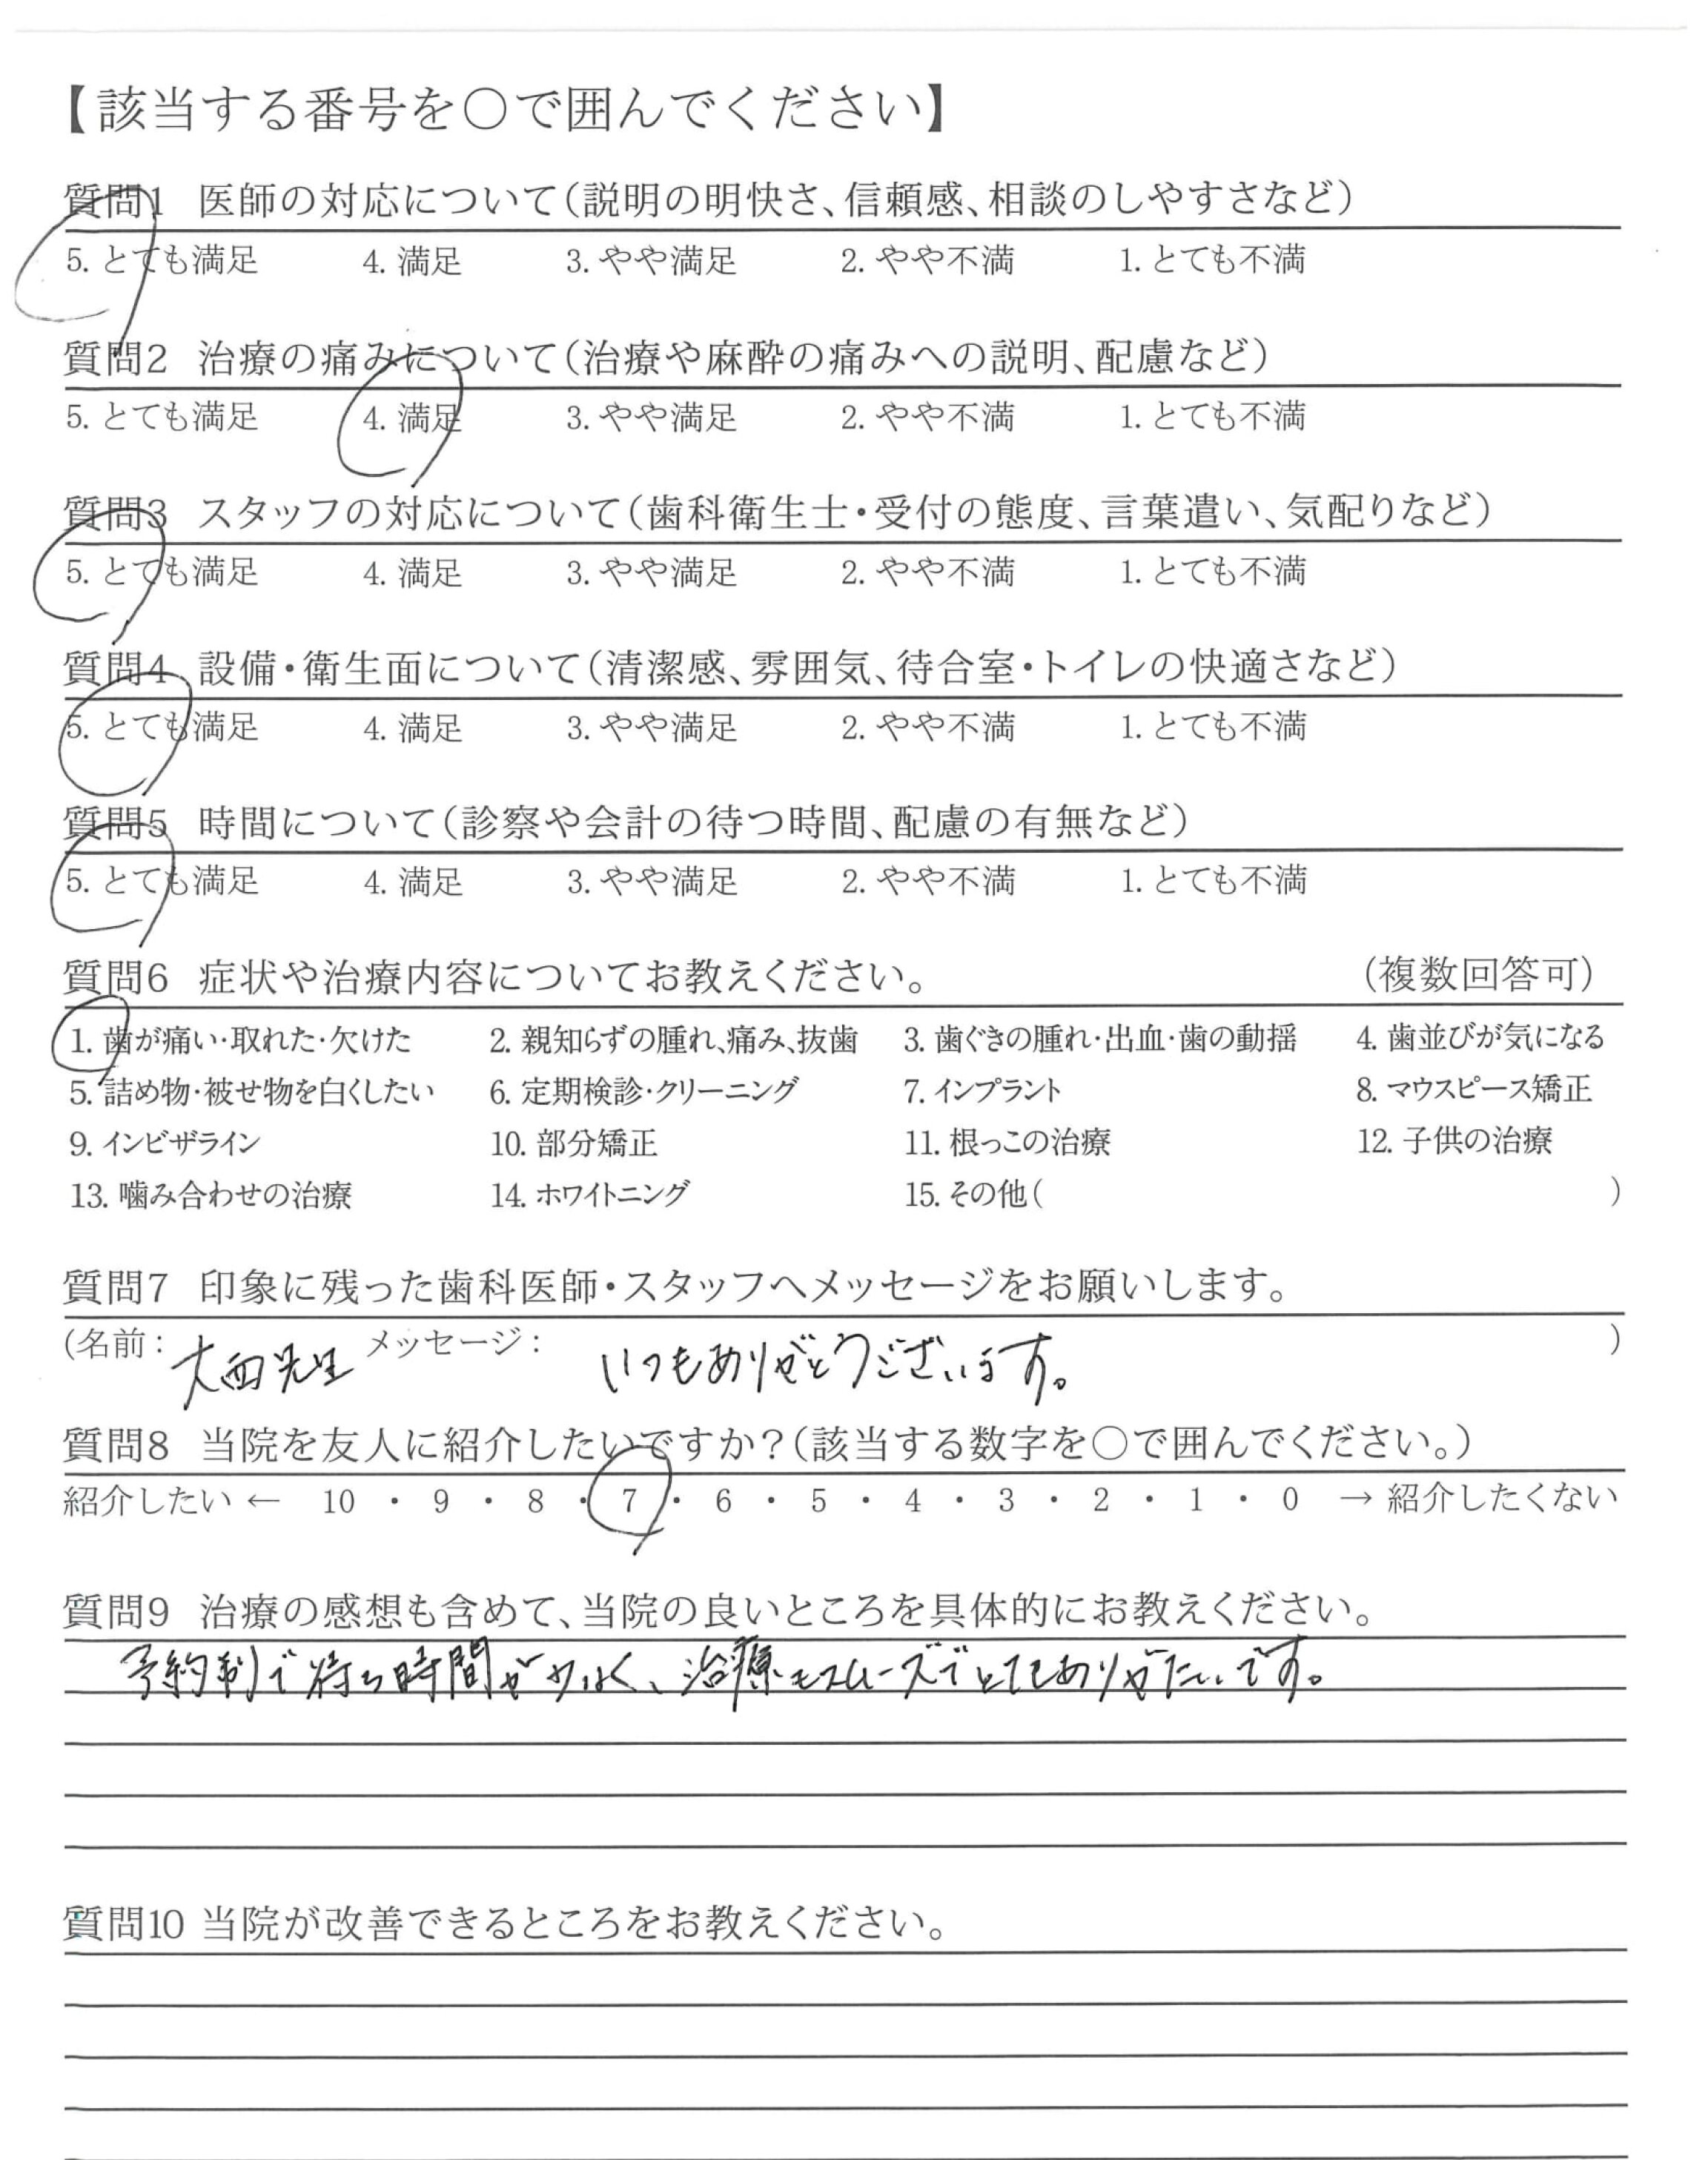 【該当する番号を○で囲んでください】
質問1 医師の対応について（説明の明快さ、信頼感、相談のしやすさなど）
5. とても満足 4. 満足 3. やや満足 2. やや不満 1. とても不満
質問2 治療の痛みについて（治療や麻酔の痛みへの説明、配慮など）
5. とても満足 4. 満足 3. やや満足 2. やや不満 1. とても不満
質問3 スタッフの対応について（歯科衛生士・受付の態度、言葉遣い、気配りなど）
5. とても満足 4. 満足 3. やや満足 2. やや不満 1. とても不満
質問4 設備・衛生面について（清潔感、雰囲気、待合室・トイレの快適さなど）
5. とても満足 4. 満足 3. やや満足 2. やや不満 1. とても不満
質問5 時間について（診察や会計の待つ時間、配慮の有無など）
5. とても満足 4. 満足 3. やや満足 2. やや不満 1. とても不満
質問6 症状や治療内容についてお教えください。 （複数回答可）
1. 歯が痛い・取れた・欠けた 2. 親知らずの腫れ、痛み、抜歯 3. 歯ぐきの腫れ・出血・歯の動揺 4. 歯並びが気になる
5. 詰め物・被せ物を白くしたい 6. 定期検診・クリーニング 7. インプラント 8. マウスピース矯正
9. インビザライン 10. 部分矯正 11. 根っこの治療 12. 子供の治療
13. 噛み合わせの治療 14. ホワイトニング 15. その他（ ）
質問7 印象に残った歯科医師・スタッフへメッセージをお願いします。
（名前： 大西先生 メッセージ： いつもありがとうございます。 ）
質問8 当院を友人に紹介したいですか？（該当する数字を○で囲んでください。）
紹介したい ← 10 ・ 9 ・ 8 ・ 7 ・ 6 ・ 5 ・ 4 ・ 3 ・ 2 ・ 1 ・ 0 → 紹介したくない
質問9 治療の感想も含めて、当院の良いところを具体的にお教えください。
予約制で待ち時間が少なく、治療もスムーズでとてもありがたいです。
質問10 当院が改善できるところをお教えください。